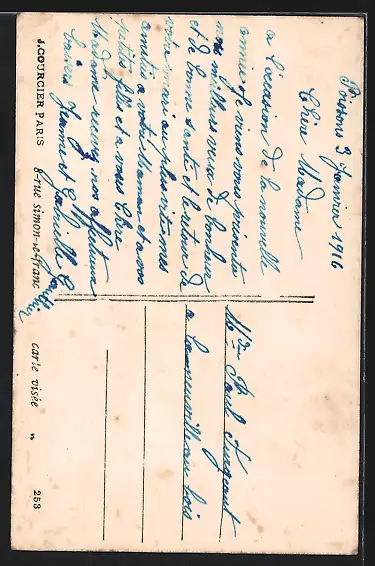 Poissons 3 Janvier 1916
Chère Madame
a l'occasion de la nouvelle
année je viens vous présenter
nos meilleurs vœux de bonheur
et de bonne santé et le retour de
votre mari au plus vite mes
amitiés a votre Maman et a vos
petites filles et a vous Chère
Madame recevez nos affectueux
baisers Jeanne et Gabrielle
Mme Paul
a Laneuville au bois
J. COURCIER PARIS 8-rue Simon-le-franc carte visée n 253